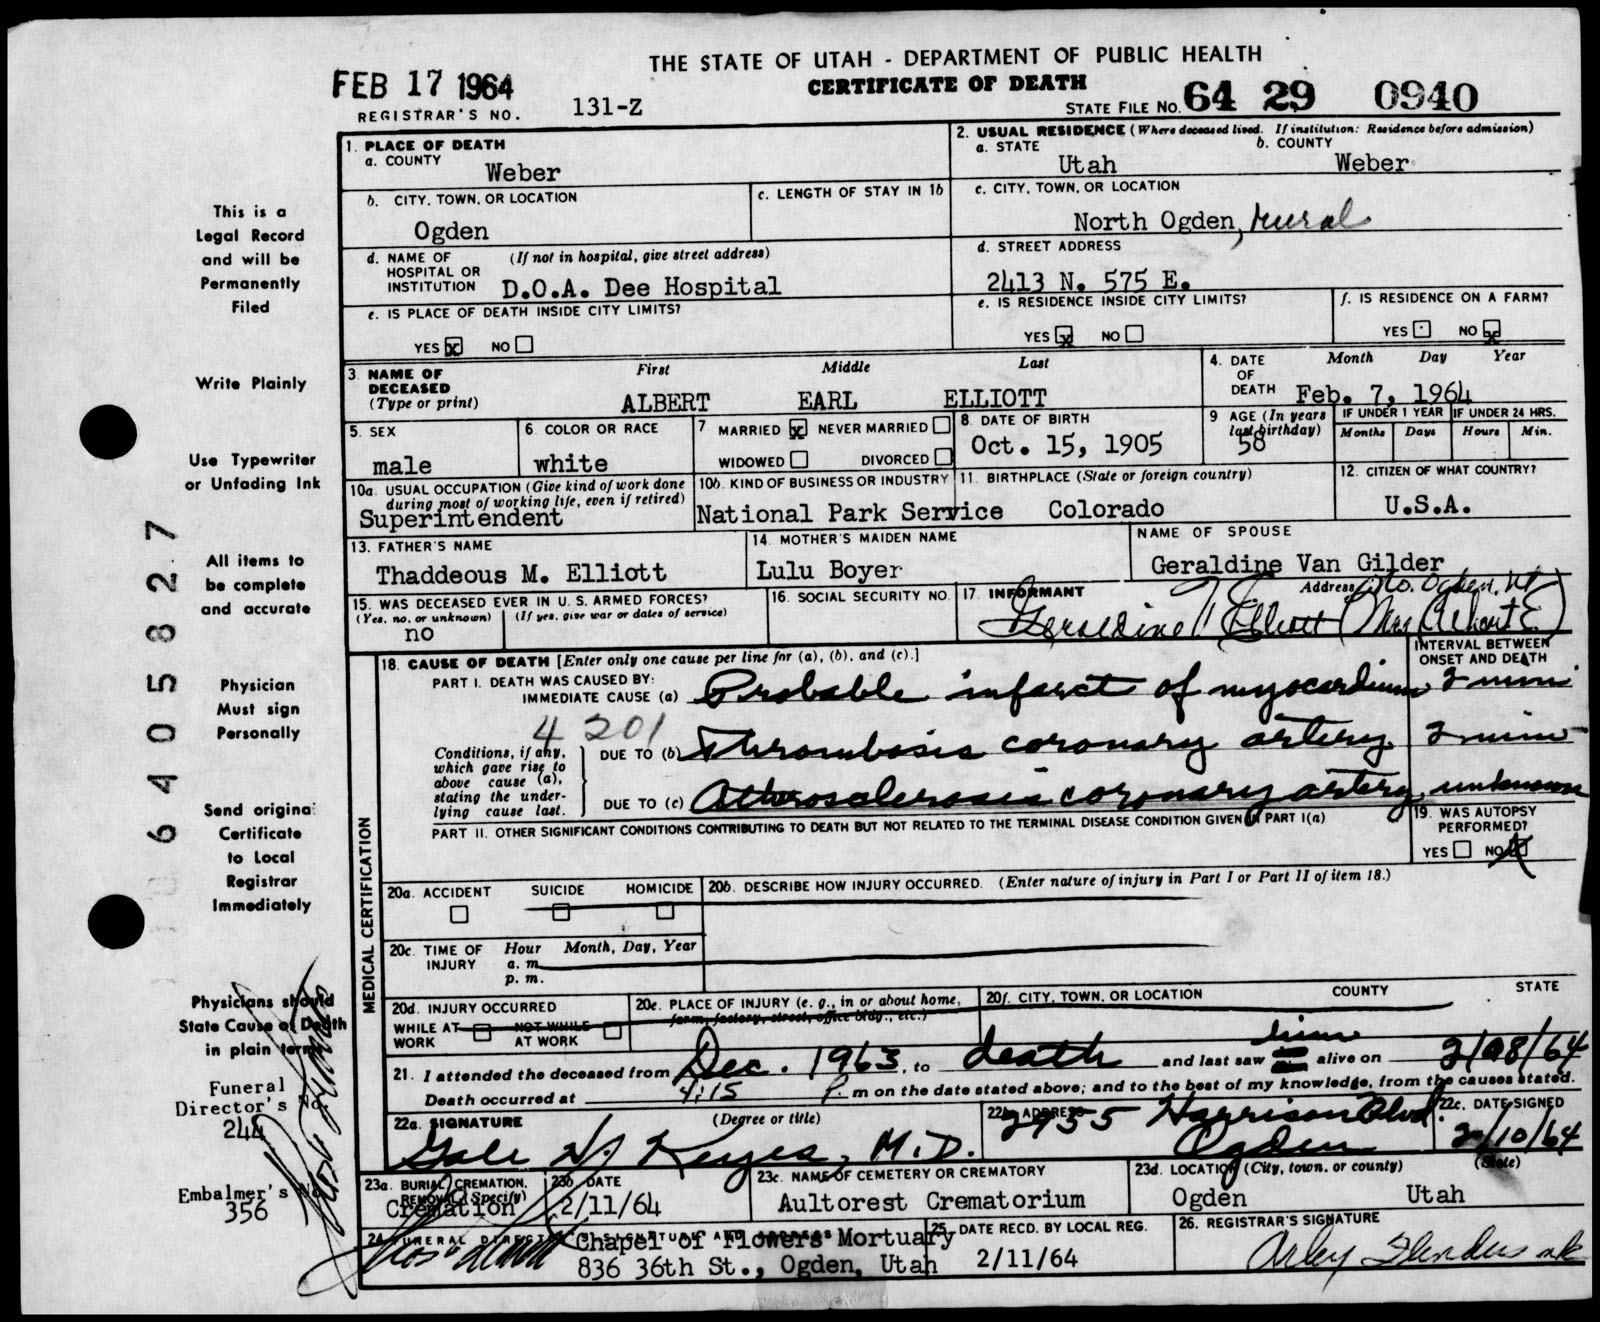 THE STATE OF UTAH - DEPARTMENT OF PUBLIC HEALTH
FEB 17 1964
CERTIFICATE OF DEATH
REGISTRAR'S NO. 131-Z
STATE FILE NO. 64 29 0940
1. PLACE OF DEATH
a. COUNTY
Weber
2. USUAL RESIDENCE (Where deceased lived. If institution: Residence before admission)
a. STATE b. COUNTY
Utah Weber
b. CITY, TOWN, OR LOCATION
Ogden
c. LENGTH OF STAY IN 1b
c. CITY, TOWN, OR LOCATION
North Ogden, rural
d. NAME OF HOSPITAL OR INSTITUTION (If not in hospital, give street address)
D.O.A. Dee Hospital
d. STREET ADDRESS
2413 N. 575 E.
e. IS PLACE OF DEATH INSIDE CITY LIMITS?
YES x NO
e. IS RESIDENCE INSIDE CITY LIMITS?
YES x NO
f. IS RESIDENCE ON A FARM?
YES NO x
3. NAME OF DECEASED (Type or print)
First Middle Last
ALBERT EARL ELLIOTT
4. DATE OF DEATH
Month Day Year
Feb. 7, 1964
5. SEX
male
6. COLOR OR RACE
white
7 MARRIED x NEVER MARRIED
WIDOWED DIVORCED
8. DATE OF BIRTH
Oct. 15, 1905
9 AGE (In years last birthday)
58
IF UNDER 1 YEAR IF UNDER 24 HRS.
Months Days Hours Min.
10a. USUAL OCCUPATION (Give kind of work done during most of working life, even if retired)
Superintendent
10b. KIND OF BUSINESS OR INDUSTRY
National Park Service
11. BIRTHPLACE (State or foreign country)
Colorado
12. CITIZEN OF WHAT COUNTRY?
U.S.A.
13. FATHER'S NAME
Thaddeous M. Elliott
14. MOTHER'S MAIDEN NAME
Lulu Boyer
NAME OF SPOUSE
Geraldine Van Gilder
15. WAS DECEASED EVER IN U. S. ARMED FORCES?
(Yes, no, or unknown) (If yes, give war or dates of service)
no
16. SOCIAL SECURITY NO.
17. INFORMANT Address No. Ogden, Ut
Geraldine V. Elliott (Mrs Albert E)
MEDICAL CERTIFICATION
18. CAUSE OF DEATH [Enter only one cause per line for (a), (b), and (c).]
INTERVAL BETWEEN ONSET AND DEATH
PART I. DEATH WAS CAUSED BY:
IMMEDIATE CAUSE (a) Probable infarct of myocardium 2 min
4 201
Conditions, if any, which gave rise to above cause (a), stating the underlying cause last.
DUE TO (b) Thrombosis coronary artery 2 min
DUE TO (c) Atherosclerosis coronary artery unknown
PART II. OTHER SIGNIFICANT CONDITIONS CONTRIBUTING TO DEATH BUT NOT RELATED TO THE TERMINAL DISEASE CONDITION GIVEN IN PART I(a)
19. WAS AUTOPSY PERFORMED?
YES NO x
20a. ACCIDENT SUICIDE HOMICIDE
20b. DESCRIBE HOW INJURY OCCURRED. (Enter nature of injury in Part I or Part II of item 18.)
20c. TIME OF INJURY Hour Month, Day, Year
a. m.
p. m.
20d. INJURY OCCURRED
WHILE AT WORK NOT WHILE AT WORK
20e. PLACE OF INJURY (e. g., in or about home, farm, factory, street, office bldg., etc.)
20f. CITY, TOWN, OR LOCATION COUNTY STATE
21. I attended the deceased from Dec. 1963, to death and last saw him alive on 2/08/64
Death occurred at 4:15 P. m on the date stated above; and to the best of my knowledge, from the causes stated.
22a. SIGNATURE (Degree or title)
Gale W. Keyes, M.D.
22b. ADDRESS
2955 Harrison Blvd.
Ogden
22c. DATE SIGNED
2/10/64
23a. BURIAL, CREMATION, REMOVAL (Specify)
Cremation
23b. DATE
2/11/64
23c. NAME OF CEMETERY OR CREMATORY
Aultorest Crematorium
23d. LOCATION (City, town, or county) (State)
Ogden Utah
24. FUNERAL DIRECTOR'S SIGNATURE AND ADDRESS
Chapel of Flowers Mortuary
836 36th St., Ogden, Utah
25. DATE RECD. BY LOCAL REG.
2/11/64
26. REGISTRAR'S SIGNATURE
This is a
Legal Record
and will be
Permanently
Filed
Write Plainly
Use Typewriter
or Unfading Ink
All items to
be complete
and accurate
Physician
Must sign
Personally
Send original
Certificate
to Local
Registrar
Immediately
Physicians should
State Cause of Death
in plain terms
Funeral
Director's No.
244
Embalmer's No.
356
6405827